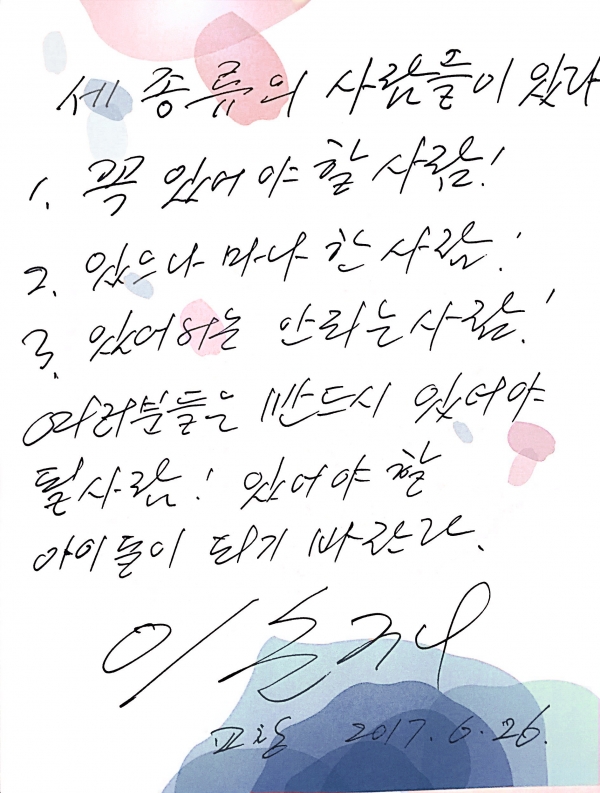 세 종류의 사람들이 있다
1. 꼭 있어야 할 사람!
2. 있으나 마나 한 사람!
3. 있어서는 안되는 사람!
여러분들은 반드시 있어야
될 사람! 있어야 할
아이들이 되기 바란다.
이순재
교장 2017. 6. 26.